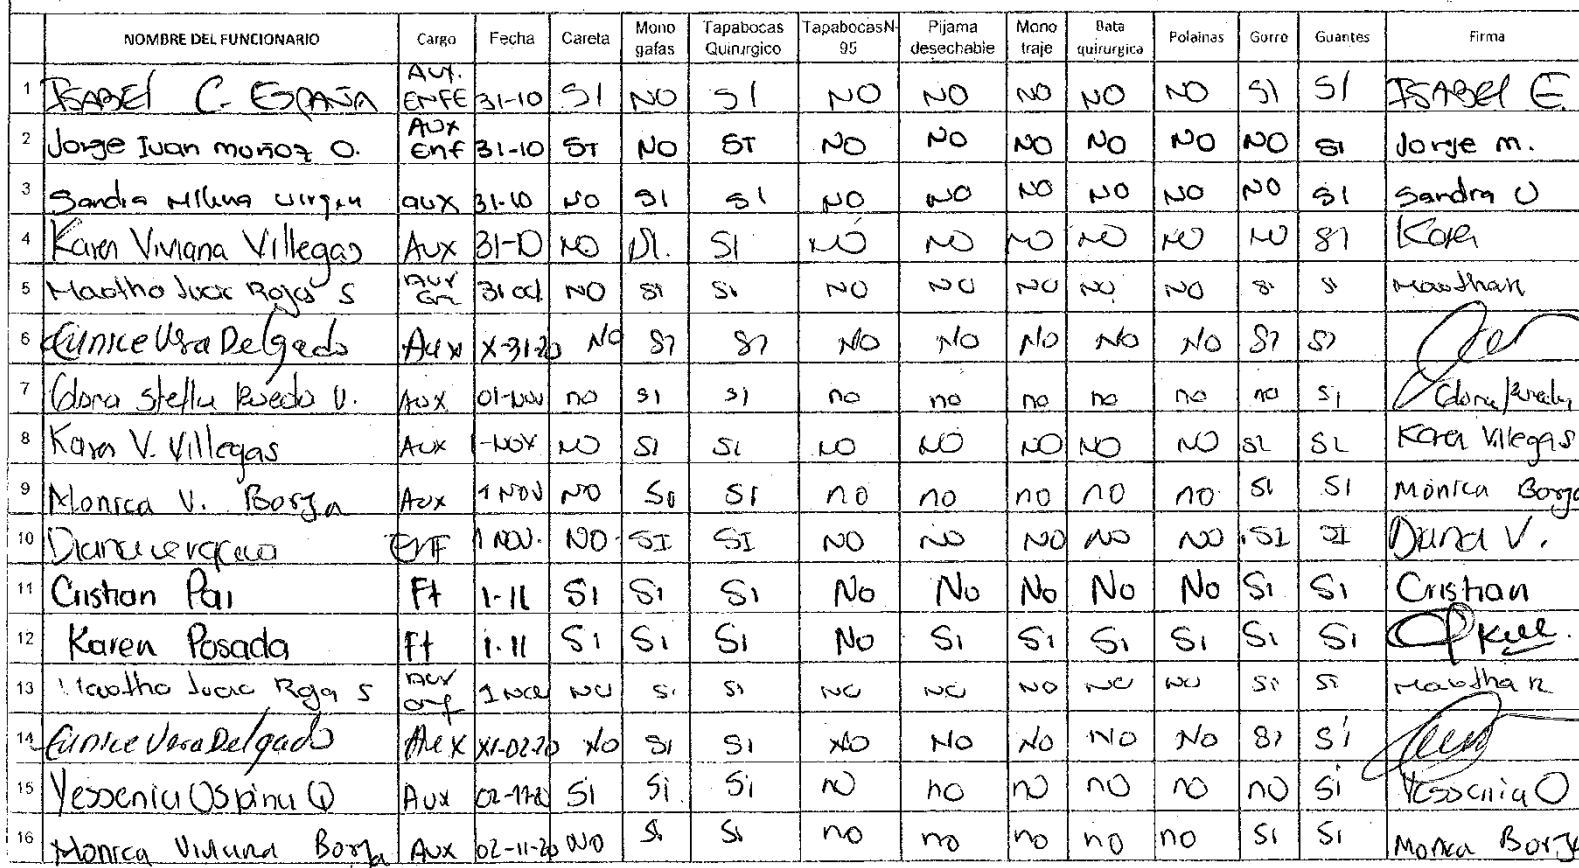 NOMBRE DEL FUNCIONARIO Cargo Fecha Careta Mono gafas Tapabocas Quirurgico TapabocasN-95 Pijama desechable Mono traje Bata quirurgica Polainas Gorro Guantes Firma
1 ISABEL C. ESPAÑA AUX. ENFE 31-10 SI NO SI NO NO NO NO NO SI SI ISABEL E
2 Jorge Ivan muñoz O. AUX Enf 31-10 SI NO SI NO NO NO NO NO NO SI Jorge m.
3 Sandra Milena aux 31-10 NO SI SI NO NO NO NO NO NO SI Sandra
4 Karen Viviana Villegas Aux 31-10 NO SI. SI NO NO NO NO NO NO SI Karen
5 Rojas S Aux 31 oct NO SI SI NO NO NO NO NO SI SI
6 Eunice Vera Delgado Aux X-31-20 NO SI SI NO NO NO NO NO SI SI
7 Stella V. Aux 01-Nov no SI SI no no no no no no SI
8 Karen V. Villegas Aux 1-NOV NO SI SI NO NO NO NO NO SI SI Karen Villegas
9 Monica V. Borja Aux 1 NOV NO SI SI no no no no no SI SI Mónica Borja
10 Diana ENF 1 NOV. NO SI SI NO NO NO NO NO SI SI Diana V.
11 Cristian Pai Ft 1-11 SI SI SI No No No No No SI SI Cristian
12 Karen Posada Ft 1-11 SI SI SI No SI SI SI SI SI SI
13 Rojas S Aux enf 1 NO SI SI NO NO NO NO NO SI SI
14 Eunice Vera Delgado Aux XI-02-20 NO SI SI NO NO NO NO NO SI SI
15 Yessenia Ospina O Aux 02-11-20 SI SI SI NO no no no no no SI Yessenia O
16 Monica Viviana Borja Aux 02-11-20 NO SI SI no no no no no SI SI Monica Borja